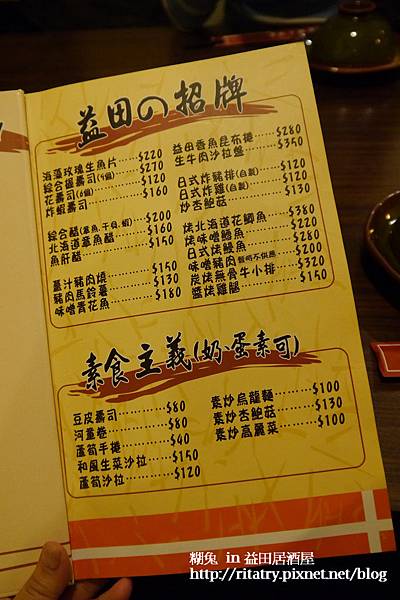 益田の招牌
海藻玫瑰生魚片……$220
綜合握壽司(9個)……$270
花壽司(6個)……$120
炸蝦壽司……$160
綜合醋(章魚.干貝.蝦)……$200
北海道章魚醋……$160
魚肝醋……$150
薑汁豬肉燒……$150
豬肉馬鈴薯……$130
味噌青花魚……$180
益田香魚昆布捲……$280
生牛肉沙拉盤……$350
日式炸豬排(自製)……$120
日式炸雞(自製)……$120
炒杏鮑菇……$130
烤北海道花鯽魚……$380
烤味噌鱈魚……$220
日式烤鰻魚……$280
味噌豬肉暫時不供應……$200
炭烤無骨牛小排……$320
醬烤雞腿……$150
素食主義(奶、蛋素可)
豆皮壽司……$80
河童卷……$80
蘆筍手捲……$40
和風生菜沙拉……$150
蘆筍沙拉……$120
素炒烏龍麵……$100
素炒杏鮑菇……$130
素炒高麗菜……$100
糊兔 in 益田居酒屋
http://ritatry.pixnet.net/blog